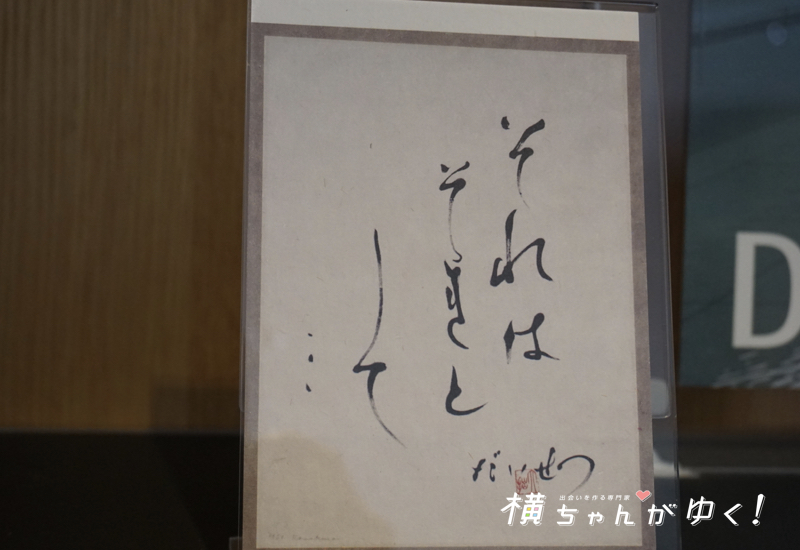 それは
それと
して
:
だいせつ
D
出会いを作る専門家
横ちゃんがゆく!